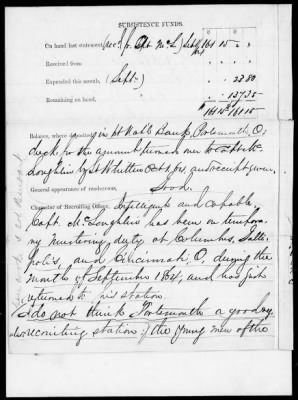 SUBSISTENCE FUNDS.
On hand last statement, (rec'd fr. Capt McL) Sept 161 15
Received from
Expended this month, (Sept.) 23 80
Remaining on hand, 137 35
161 15 161 15
Balance, where deposited, in Bank, Portsmouth, O,
check for the amount turned over to Capt Mc
Loughlin by and receipt given.
General appearance of rendezvous, Good.
Character of Recruiting Officer, Intelligent and capable
Capt. McLoughlin has been on tempora-
ry mustering duty at Columbus, Galli-
polis, and Cincinnati, O, during the
month of September 1864, and has just
returned to his station.
I do not think Portsmouth a good
recruiting station: the young men of the